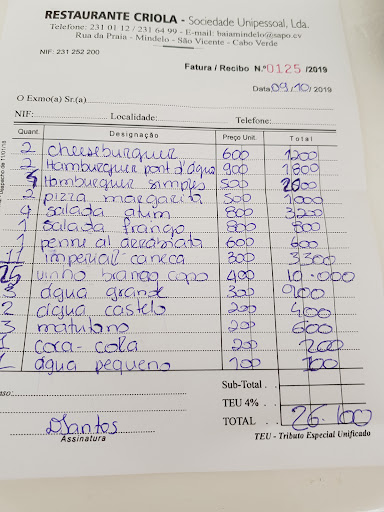 RESTAURANTE CRIOLA - Sociedade Unipessoal, Lda.
Telefone: 231 01 12 / 231 64 99 - E-mail: baiamindelo@sapo.cv
Rua da Praia - Mindelo - São Vicente - Cabo Verde
NIF: 231 252 200
Fatura / Recibo N.º 0125 /2019
Data 09/10/2019
O Exmo(a) Sr.(a)
NIF: Localidade: Telefone:
Quant. Designação Preço Unit. Total
2 cheeseburguer 600 1200
2 Hamburguer pont d'água 900 1800
Hamburguer simples 500 2000
2 pizza margarita 500 1000
4 salada atum 800 3200
1 salada frango 800 800
1 penne al arrabiata 600 600
11 imperial caneca 300 3300
25 vinho branco copo 400 10.000
3 água grande 300 900
2 água castelo 200 400
3 matutano 200 600
1 coca-cola 200 200
1 água pequeno 100 100
Sub-Total
TEU 4%
TOTAL 26.100
DSantos
Assinatura
TEU - Tributo Especial Unificado